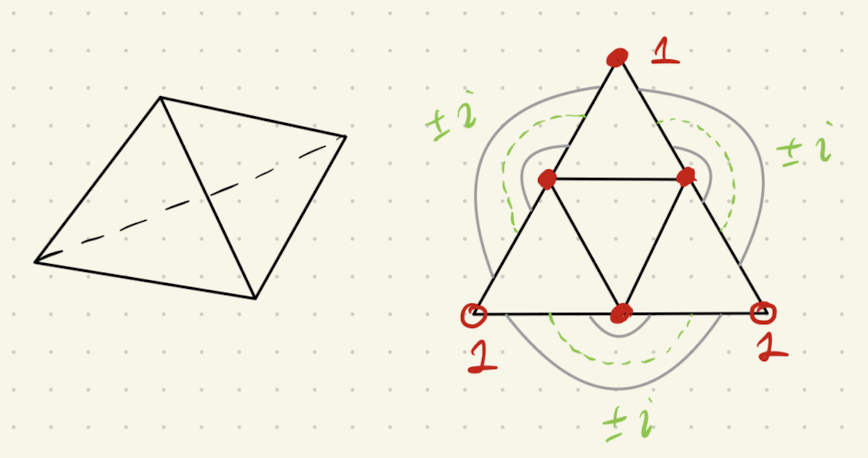 1
± i
± i
1 1
± i